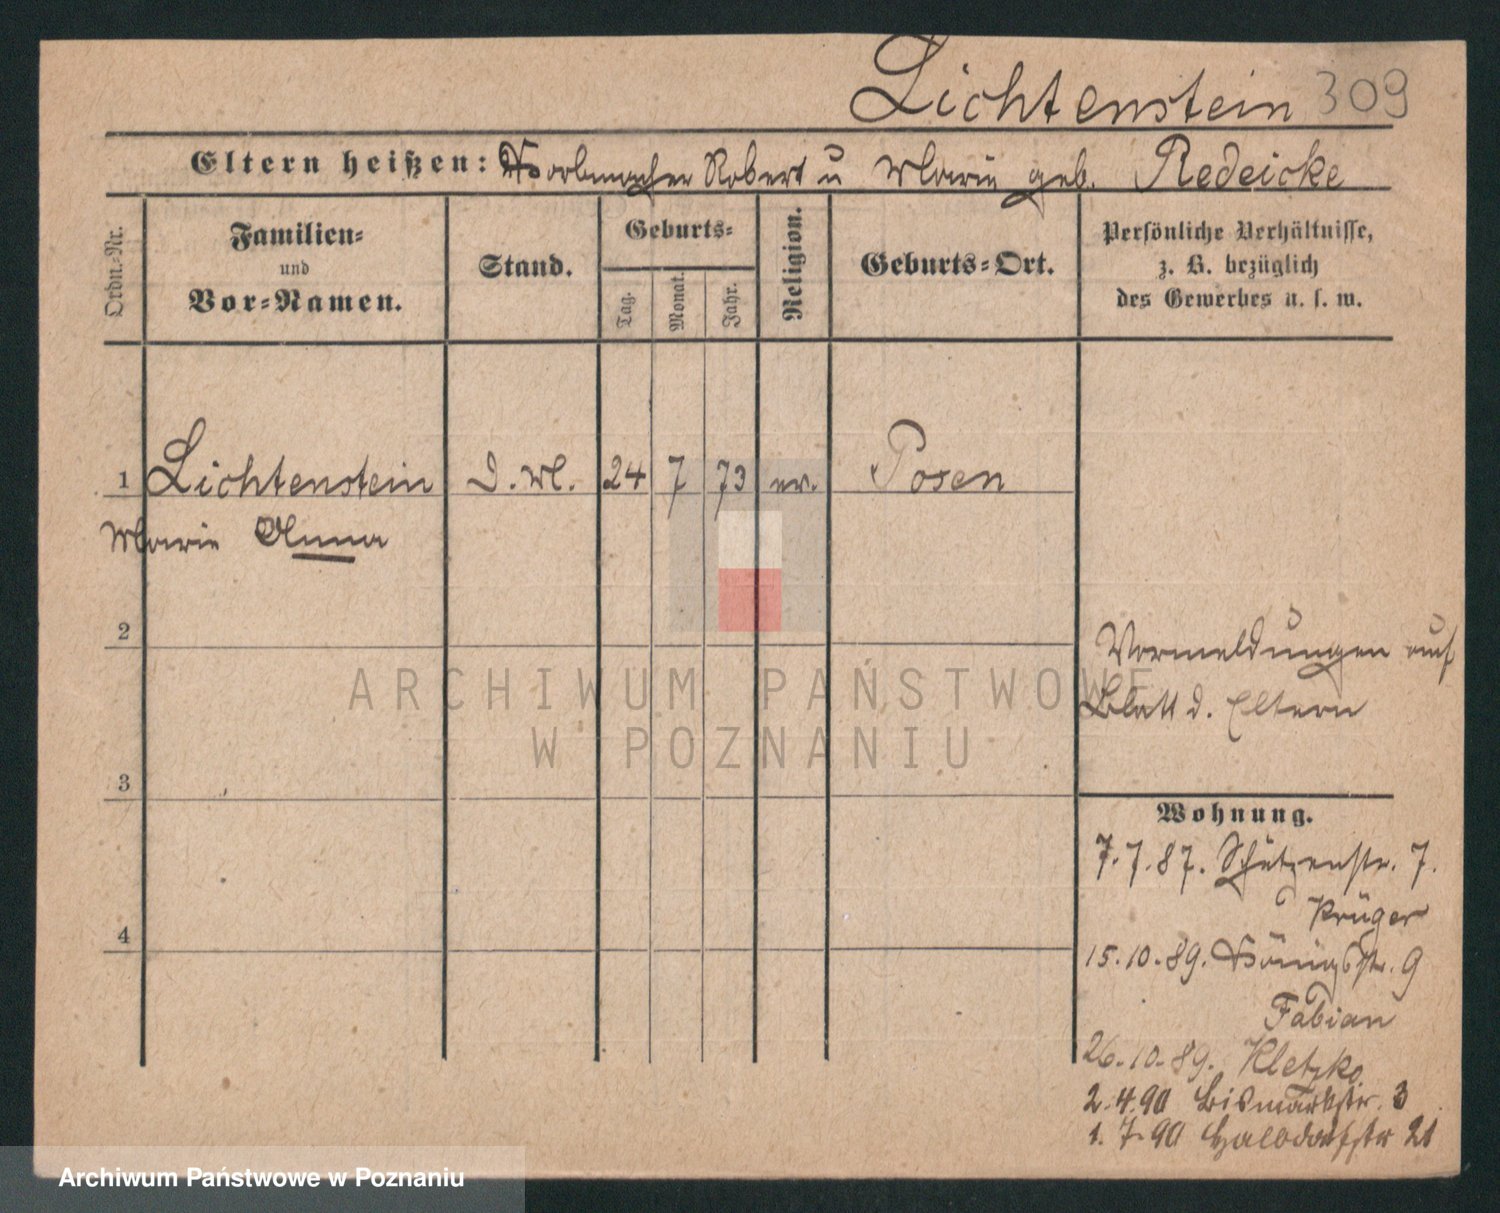 Lichtenstein 309
Eltern heißen: Korbmacher Robert u Marie geb. Redeicke
Ordn.-Nr.
Familien-
und
Vor-Namen.
Stand.
Geburts-
Tag.
Monat.
Jahr.
Religion.
Geburts-Ort.
Persönliche Verhältnisse,
z. B. bezüglich
des Gewerbes u. s. w.
1 Lichtenstein D. M. 24 7 73 ev. Posen
Marie Anna
2
Vormeldungen auf
Blatt d. Eltern
ARCHIWUM PAŃSTWOWE
W POZNANIU
3
Wohnung.
7.7.87. Schützenstr. 7.
Krüger
4
15.10.89. Königsstr. 9
Fabian
26.10.89. Kletzko
2.4.90 Bismarkstr. 3
1.7.90 Halbdorfstr 21
Archiwum Państwowe w Poznaniu